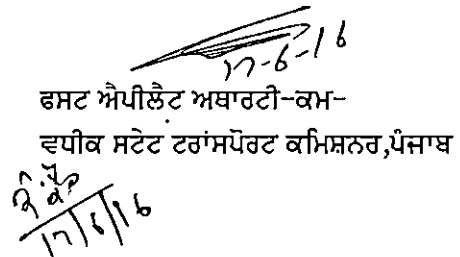 17-6-16
ਫਸਟ ਐਪੀਲੈਟ ਅਥਾਰਟੀ-ਕਮ-
ਵਧੀਕ ਸਟੇਟ ਟਰਾਂਸਪੋਰਟ ਕਮਿਸ਼ਨਰ,ਪੰਜਾਬ
17/6/16